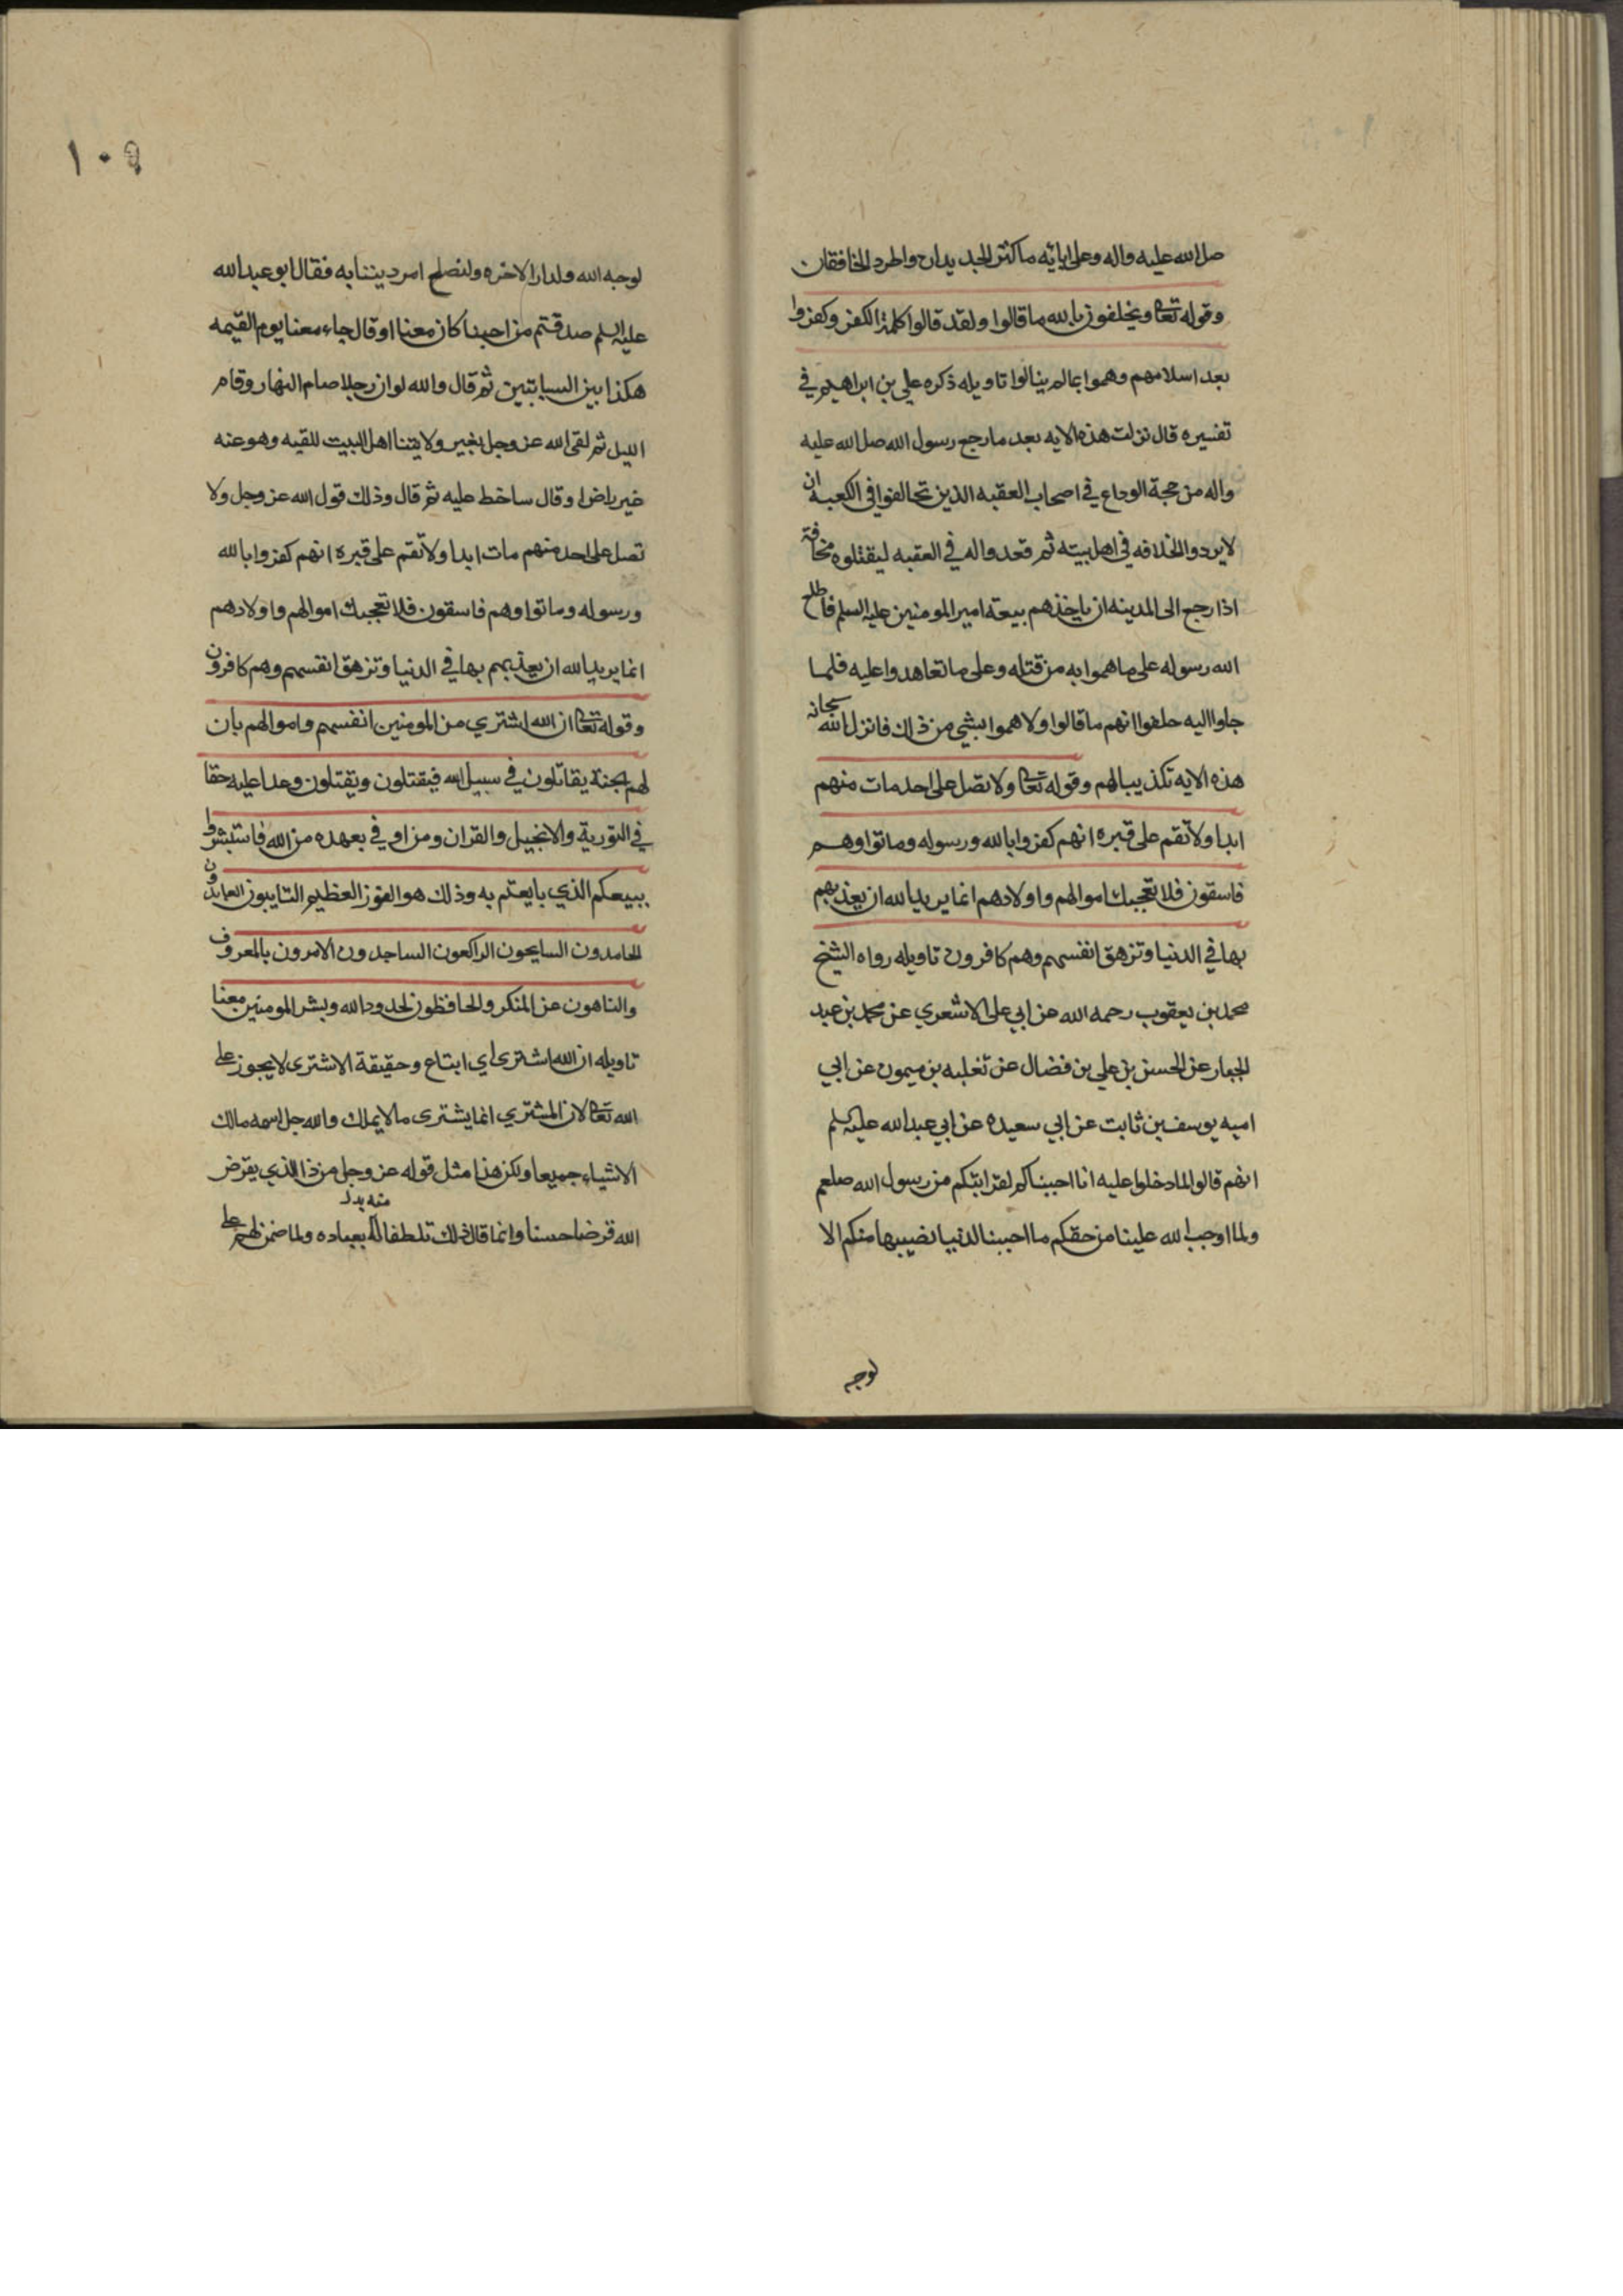 صلى الله عليه واله وعلى ابائه ماكثر الجديدان واطرد الخافقان
وقوله تعا ويحلفون بالله ما قالوا ولقد قالوا كلمة الكفر وكفروا
بعد اسلامهم وهموا بمالم ينالوا تاويله ذكره علي بن ابراهيم في
تفسيره قال نزلت هذه الايه بعد ما رجع رسول الله صلى الله عليه
واله من حجة الوداع في اصحاب العقبه الذين تحالفوا في الكعبه ان
لا يردوا الخلافه في اهل بيته ثم قعدوا له في العقبه ليقتلوه مخافة
اذا رجع الى المدينه ان ياخذهم ببيعة امير المومنين عليه السلم فاطلع
الله رسوله على ما هموا به من قتله وعلى ما تعاهدوا عليه فلما
جاوا اليه حلفوا انهم ما قالوا ولا هموا بشي من ذلك فانزل الله سبحانه
هذه الايه تكذيبا لهم وقوله تعا ولا تصل على احد مات منهم
ابدا ولا تقم على قبره انهم كفروا بالله ورسوله وماتوا وهم
فاسقون فلا تعجبك اموالهم واولادهم انما يريد الله ان يعذبهم
بها في الدنيا وتزهق انفسهم وهم كافرون تاويله رواه الشيخ
محمد بن يعقوب رحمه الله عن ابي على الاشعري عن محمد بن عبد
الجبار عن الحسن بن علي بن فضال عن ثعلبه بن ميمون عن ابي
اميه يوسف بن ثابت عن ابي سعيده عن ابي عبد الله عليه السلم
انهم قالوا لما دخلوا عليه انا احببناكم لقرابتكم من رسول الله صلعم
ولما اوجب الله علينا من حقكم ما احببنا لدنيا نصيبها منكم الا
لوجه
١٠٩
لوجه الله ولدار الاخره ولنصلح امر ديننا به فقال ابو عبد الله
عليه السلم صدقتم من احبنا كان معنا او قال جاء معنا يوم القيمه
هكذا بين السبابتين ثم قال والله لو ان رجلا صام النهار وقام
الليل ثم لقى الله عز وجل بغير ولايتنا اهل البيت للقيه وهو عنه
غير راض او قال ساخط عليه ثم قال وذلك قول الله عز وجل ولا
تصل على احد منهم مات ابدا ولا تقم على قبره انهم كفروا بالله
ورسوله وماتوا وهم فاسقون فلا تعجبك اموالهم واولادهم
انما يريد الله ان يعذبهم بها في الدنيا وتزهق انفسهم وهم كافرون
وقوله تعا ان الله اشتري من المومنين انفسهم واموالهم بان
لهم الجنة يقاتلون في سبيل الله فيقتلون ويقتلون وعدا عليه حقا
في التورية والانجيل والقران ومن اوفي بعهده من الله فاستبشروا
ببيعكم الذي بايعتم به وذلك هو الفوز العظيم التايبون العابدون
الحامدون السايحون الراكعون الساجدون الامرون بالمعروف
والناهون عن المنكر والحافظون لحدود الله وبشر المومنين معنا
تاويله ان الله اشترى اي ابتاع وحقيقة الاشترى لا يجوز على
الله تعا لان المشتري انما يشترى ما لا يملك والله جل اسمه مالك
الاشياء جميعا ولكن هذا مثل قوله عز وجل من ذا الذي يقرض
منه بدل
الله قرضا حسنا وانما قال ذلك تلطفا له بعباده ولما ضمن لهم على